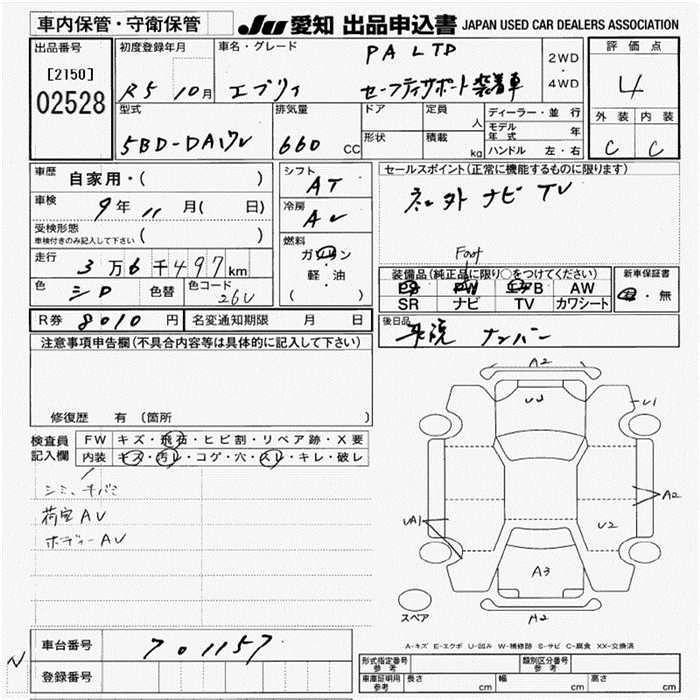 車内保管・守衛保管
JU 愛知 出品申込書 JAPAN USED CAR DEALERS ASSOCIATION
出品番号
[2150]
02528
初度登録年月
R5 10月
車名・グレード
PA LTD
エブリィ セーフティサポート装着車
2WD
・
4WD
評価点
4
外装 内装
C C
型式
5BD-DA17V
排気量
660 CC
ドア
形状
定員 人
積載 kg
ディーラー・並行
モデル年式 年
ハンドル 左・右
車歴 自家用・( )
車検 9年 11月( 日)
受検形態
車検付きのみ記入して下さい ( )
走行 3万6千497km
色 シロ 色替 色コード 26U
R券 8010円 名変通知期限 月 日
シフト
AT
冷房
AC
燃料
ガソリン
・
軽油
( )
セールスポイント(正常に機能するものに限ります)
ネ外 ナビ TV
Foot
装備品(純正品に限り○をつけてください)
PS PW エアB AW
SR ナビ TV カワシート
新車保証書
有・無
後日品
ナンバー
注意事項申告欄(不具合内容等は具体的に記入して下さい)
修復歴 有(箇所 )
検査員記入欄
FW キズ・飛石・ヒビ割・リペア跡・X要
内装 キズ・汚レ・コゲ・穴・スレ・キレ・破レ
シミ、
荷室AU
ボディーAU
A2
U3
U1
A2
UA1
U2
A3
A2
スペア
A-キズ E-エクボ U-凹み W-補修跡 S-サビ C-腐食 XX-交換済
車台番号 701157
登録番号
形式指定番号 参考
類別区分番号 参考
車庫証明用 参考 長さ cm 幅 cm 高さ cm